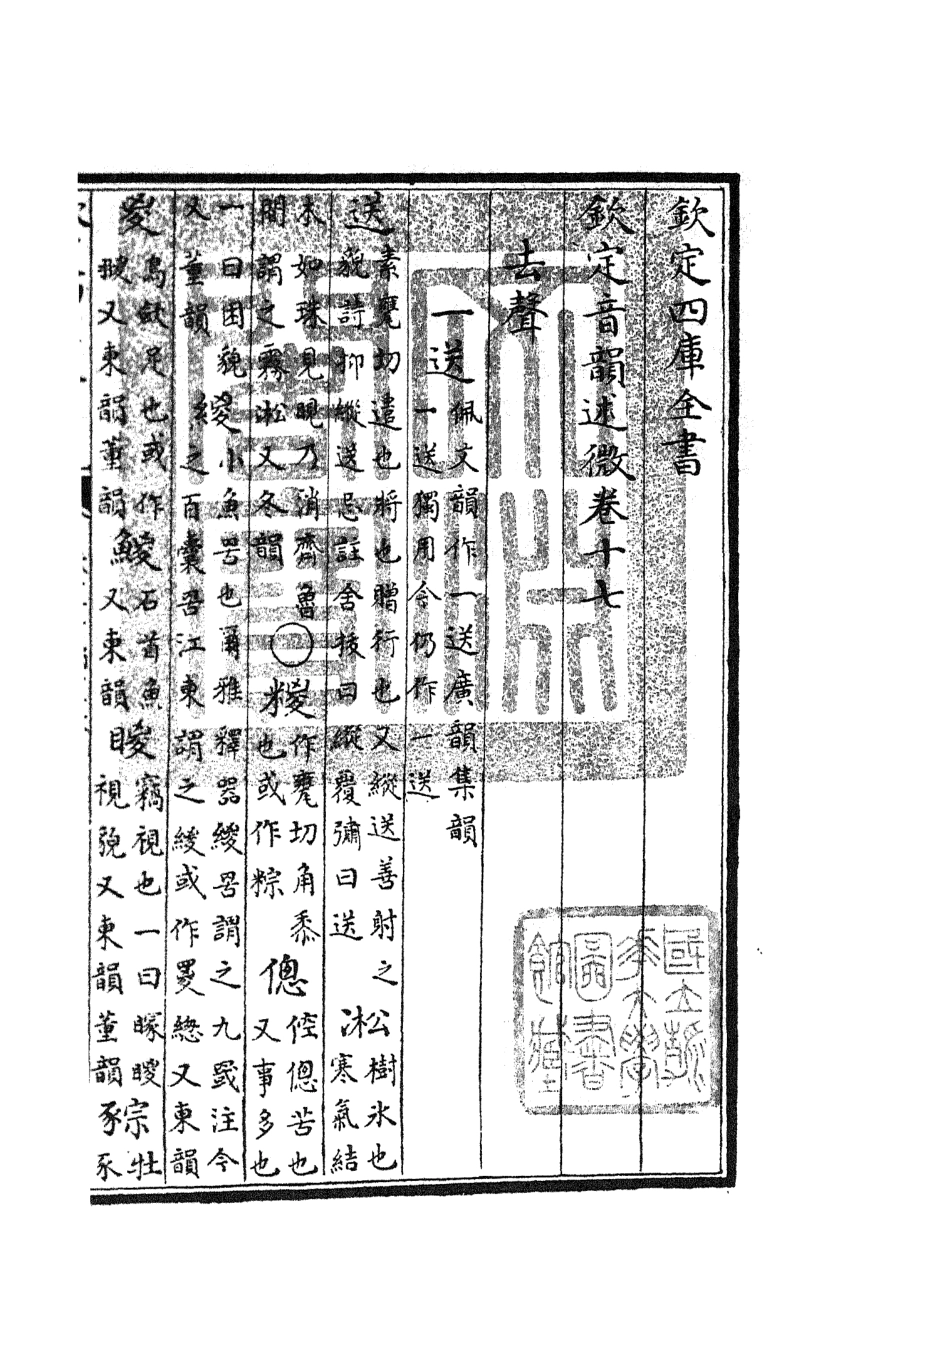 欽定四庫全書
欽定音韻述微卷十七
去聲
一送 佩文韻作一送廣韻集韻
一送獨用今仍作一送
送 素甕切遣也將也贈行也又縱送善射之
貌詩抑縱送忌註舍拔曰縱覆彇曰送 凇 樹氷也
寒氣結
木如珠見晛乃消齊魯
間謂之霧凇又冬韻 ○ 糉 作甕切角黍
也或作粽 傯 倥傯苦也
又事多也
一曰困貌
又董韻 緵 小魚罟也爾雅釋器緵罟謂之九罭注今
之百囊罟江東謂之緵或作緫又東韻
㚇 鳥歛足也或作
又東韻董韻 鯼 石首魚
又東韻 䁓 竊視也一曰矇䁓
視貌又東韻董韻 牡
豕